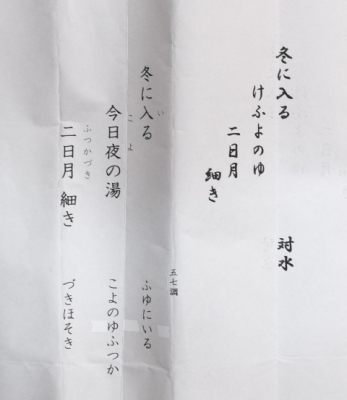 冬に入る 対水
けふよのゆ
二日月
細き
五七調
冬に入る ふゆにいる
い
今日夜の湯 こよのゆふつか
こよ
二日月 細き づきほそき
ふつかづき